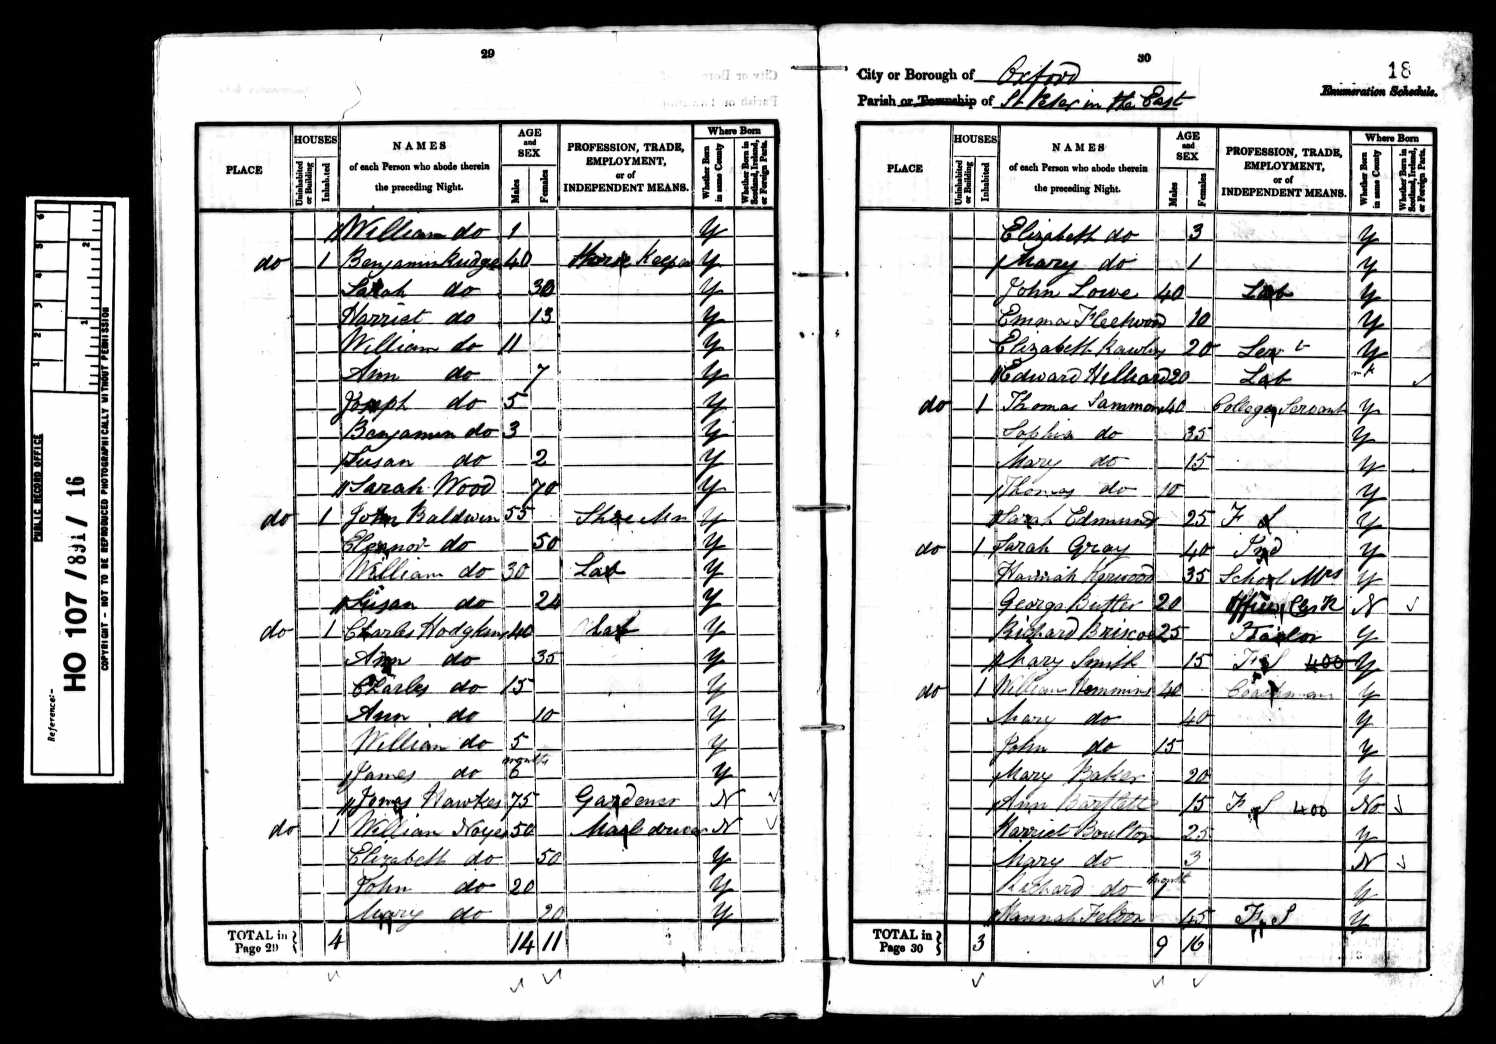 PUBLIC RECORD OFFICE
Reference:-
HO 107 / 891 / 16
COPYRIGHT - NOT TO BE REPRODUCED PHOTOGRAPHICALLY WITHOUT PERMISSION
29
PLACE
HOUSES
Uninhabited or Building
Inhabited
NAMES
of each Person who abode therein
the preceding Night.
AGE
and
SEX
Males
Females
PROFESSION, TRADE,
EMPLOYMENT,
or of
INDEPENDENT MEANS.
Where Born
Whether Born in same County
Whether Born in Scotland, Ireland, or Foreign Parts.
William do 1 y
do 1 Benjamin Rudge 40 Keeper y
Sarah do 30 y
Harriet do 13 y
William do 11 y
Ann do 7 y
Joseph do 5 y
Benjamin do 3 y
Susan do 2 y
Sarah Wood 70 y
do 1 John Baldwin 55 Shoe Mn y
Elennor do 50 y
William do 30 Lab y
Susan do 24 y
do 1 Charles Hodgkins 40 Lab y
Ann do 35 y
Charles do 15 y
Ann do 10 y
William do 5 y
James do 6 months y
Jonas Hawkes 75 Gardener N
do 1 William Noyes 50 Mail driver N
Elizabeth do 50 y
John do 20 y
Mary do 20 y
TOTAL in Page 29 4 14 11
30
City or Borough of Oxford
Parish or Township of St Peter in the East
18
Enumeration Schedule.
PLACE
HOUSES
Uninhabited or Building
Inhabited
NAMES
of each Person who abode therein
the preceding Night.
AGE
and
SEX
Males
Females
PROFESSION, TRADE,
EMPLOYMENT,
or of
INDEPENDENT MEANS.
Where Born
Whether Born in same County
Whether Born in Scotland, Ireland, or Foreign Parts.
Elizabeth do 3 y
Mary do 1 y
John Lowe 40 Lab y
Emma Fleetwood 10 y
Elizabeth 20 y
Edward Hilliard 20 Lab
do 1 Thomas Sammons 40 College Servant y
Sophia do 35 y
Mary do 15 y
Thomas do 10 y
Sarah Edmunds 25 F S y
do 1 Sarah Gray 40 Ind y
Hannah 35 School Mrs y
George Butler 20 Clerk N
Richard Briscoe 25 Tailor y
Mary Smith 15 F S 400 y
do 1 William Hemmins 40 Coachman y
Mary do 40 y
John do 15 y
Mary Baker 20 y
Ann Bartlett 15 F S 400 No
Harriet Boulton 25 y
Mary do 3 N
Richard do 7 month y
Hannah Felton 45 F S y
TOTAL in Page 30 3 9 16